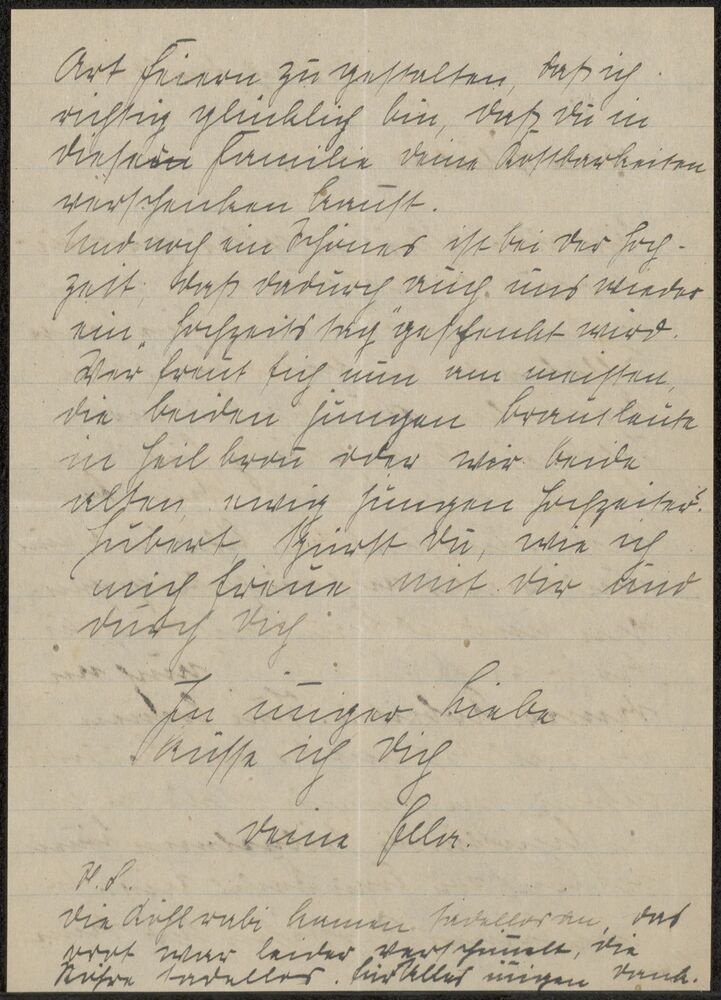 Art Feiern zu gestalten, daß ich
richtig glücklich bin, daß du in
diesem Familie deine Kostbarkeiten
verschenken kannst.
Und noch ein Schönes ist bei der Hoch-
zeit, daß dadurch auch uns wieder
ein „Hochzeitstag" geschenkt wird.
Wer freut sich nun am meisten,
die beiden jungen Brautleute
in Heilbronn oder wir beide
alten, ewig jungen Hochzeiter.
Hubert, spürst du, wie ich
mich freue mit dir und
durch dich
In inniger Liebe
küsse ich dich
deine Ella.
P.S.
Die Kohlrabi kamen tadellos an, das
Brot war leider verschimmelt, die
tadellos. Für Alles innigen Dank.